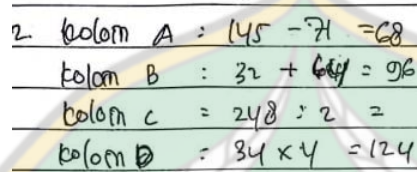 2. kolom A : 145 - 71 = 68
kolom B : 32 + 64 = 96
kolom C = 248 : 2 =
kolom D = 34 x 4 = 124